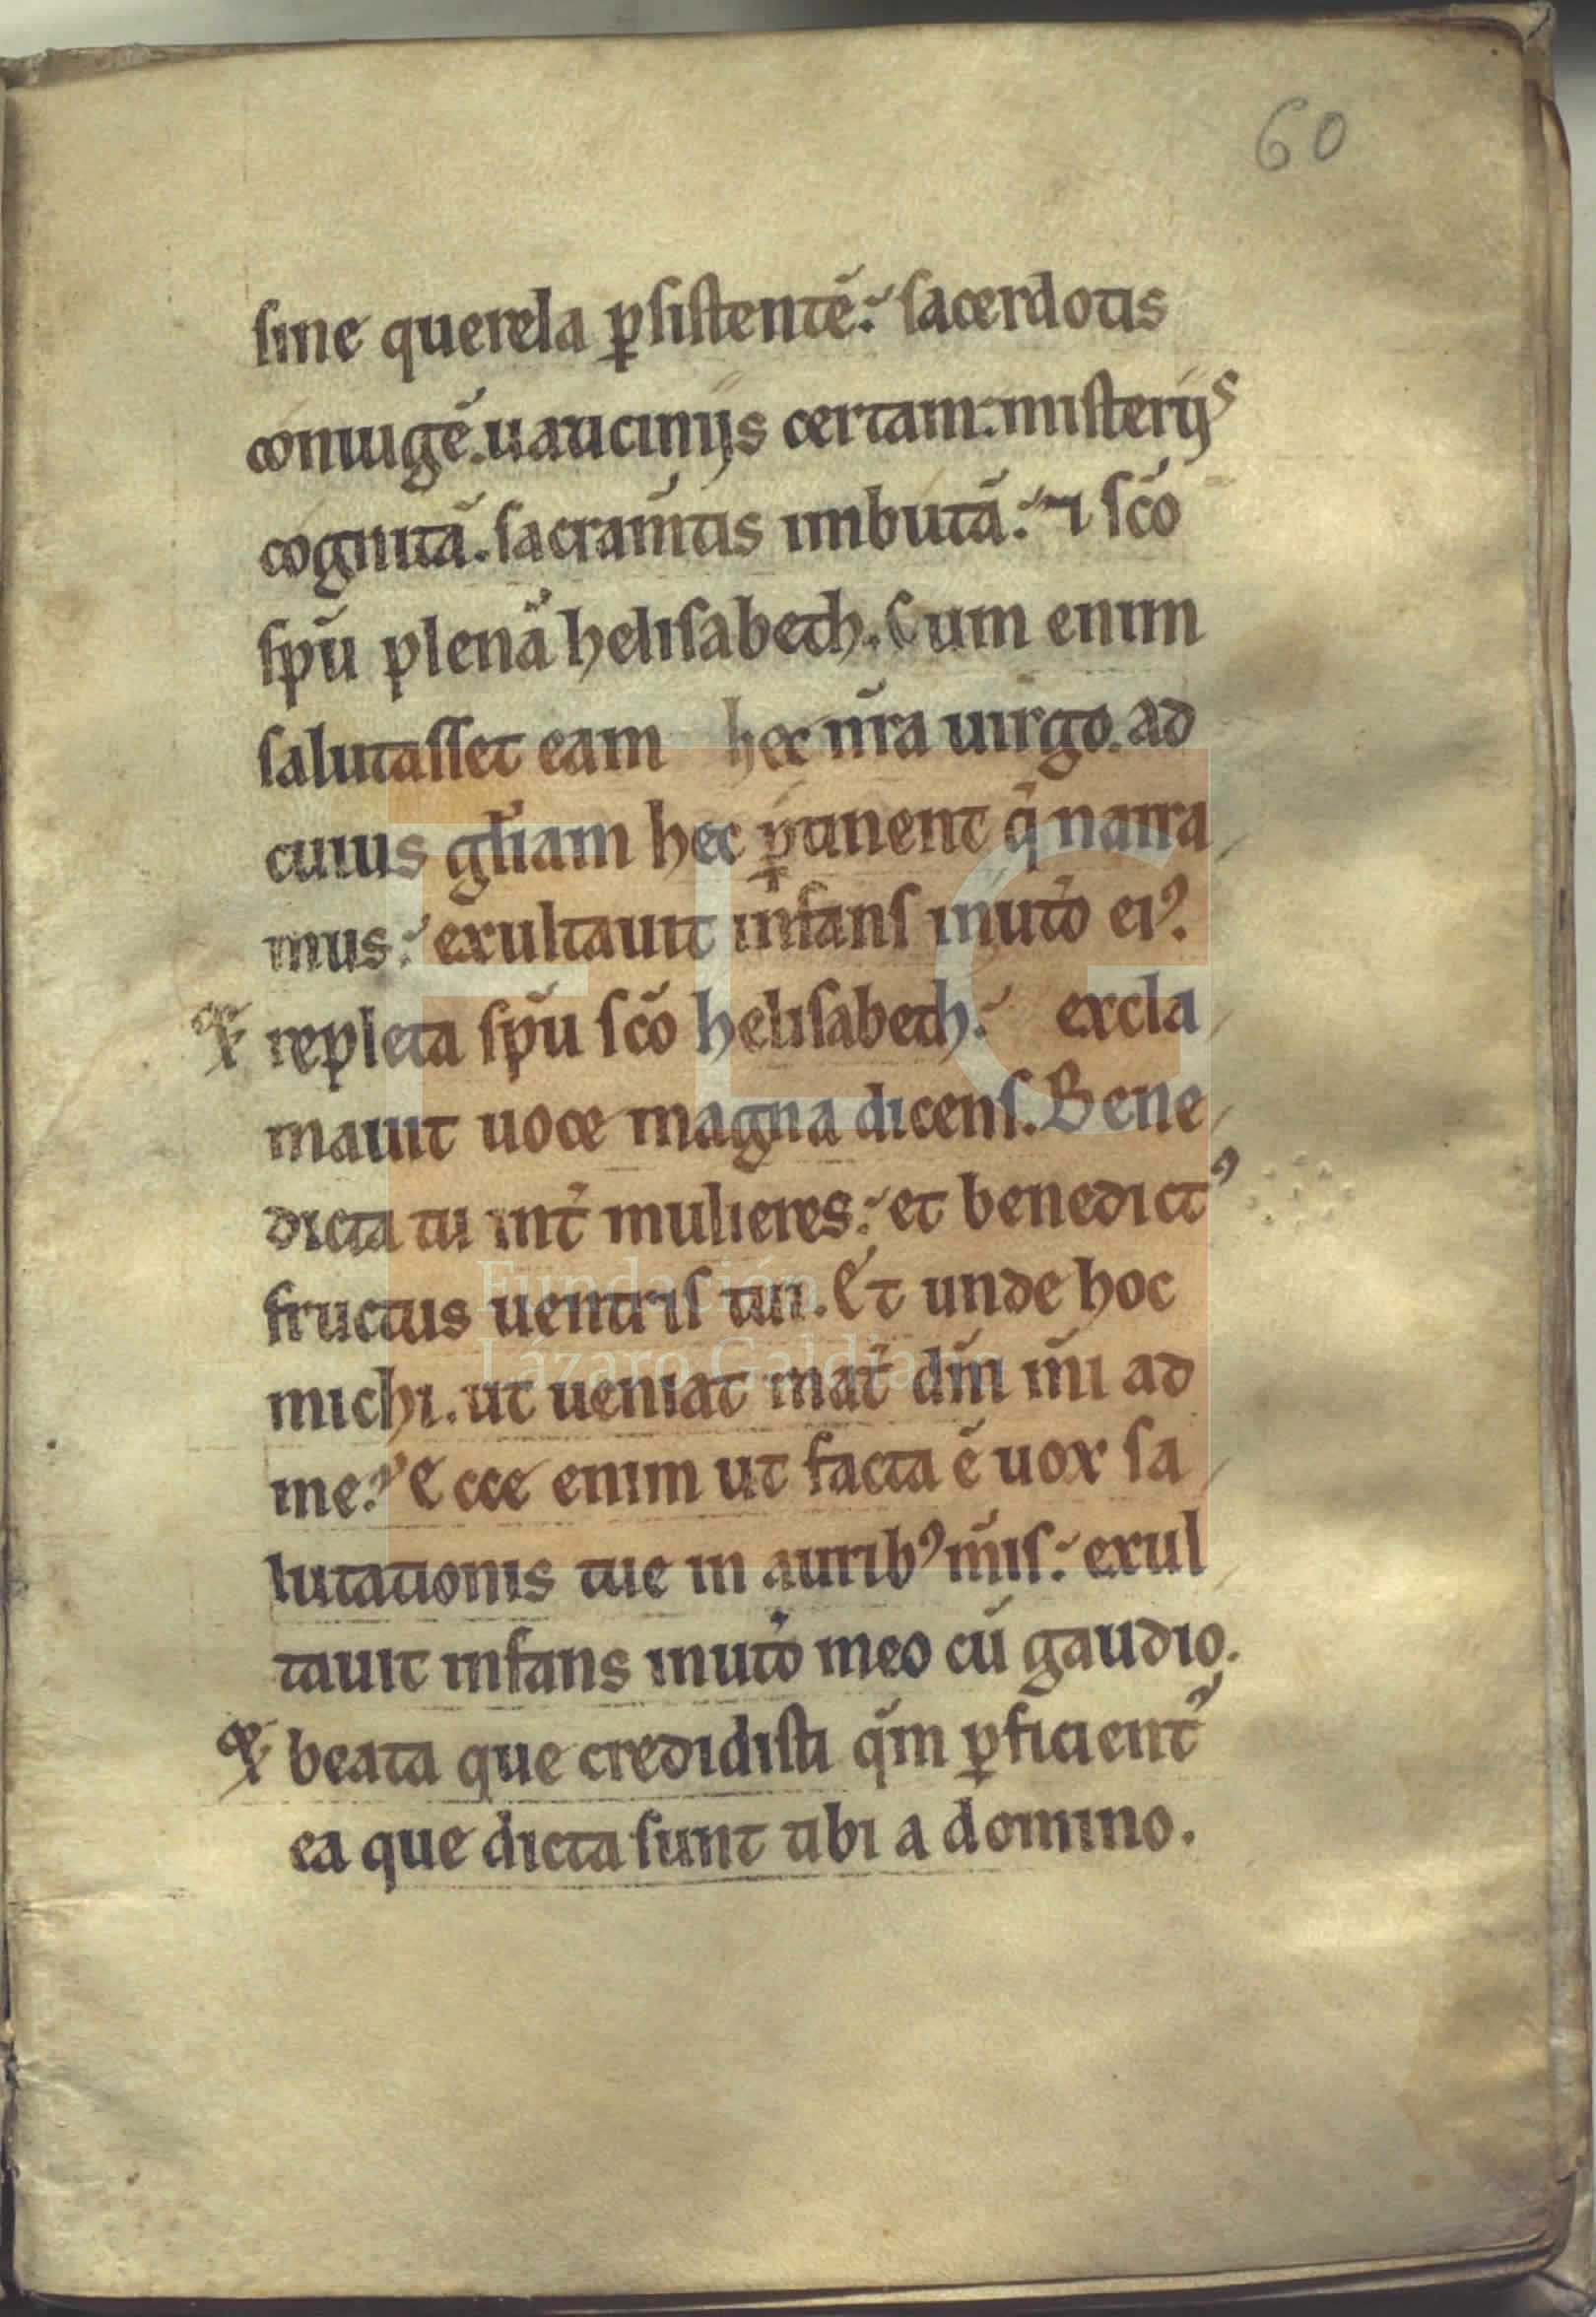 60
sine querela ꝑsistentē: sacerdotis
coniugē. uaticinijs certam: misterijs
cognitā. sacram̄tis imbutā: ⁊ sc̄o
sp̄u plenā helisabeth. Cum enim
salutasset eam hec nr̄a uirgo. ad
cuius gl̄iam hec ꝑtinent q̄ narra
mus: exultauit infans inut̄o eiꝰ.
Et repleta sp̄u sc̄o helisabeth: excla
mauit uoce magna dicens. Bene
dicta tu int̄ mulieres: et benedictꝰ
fructus uentris tui. Et unde hoc
michi. ut ueniat mat̄ dn̄i m̄i ad
me? Ecce enim ut facta ē uox sa
lutationis tue in auribꝰ m̄is: exul
tauit infans inut̄o meo cū gaudio.
Et beata que credidisti qm̄ ꝑficient᷑
ea que dicta sunt tibi a domino.
FLG
Fundación
Lázaro Galdiano